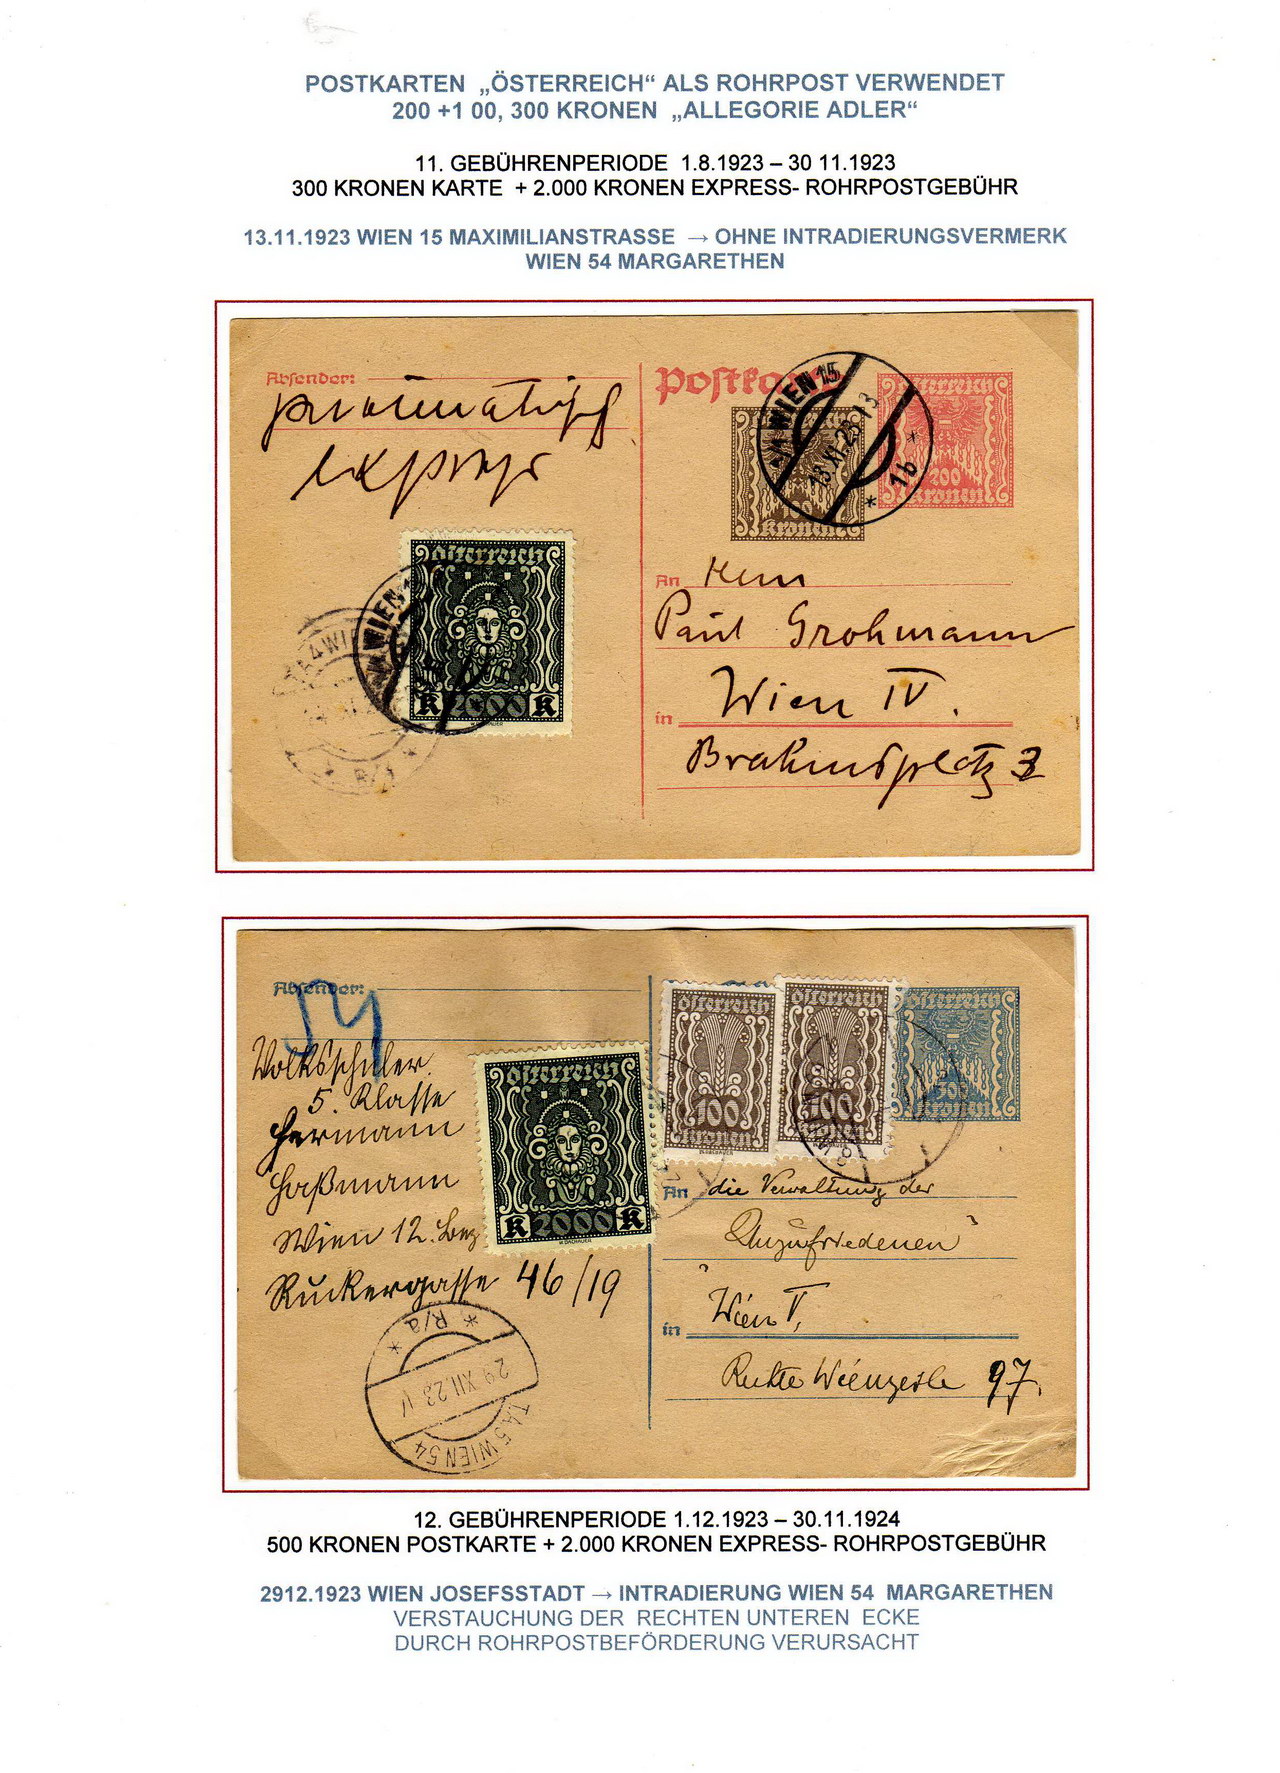 POSTKARTEN „ÖSTERREICH“ ALS ROHRPOST VERWENDET
200 +1 00, 300 KRONEN „ALLEGORIE ADLER“
11. GEBÜHRENPERIODE 1.8.1923 – 30 11.1923
300 KRONEN KARTE + 2.000 KRONEN EXPRESS- ROHRPOSTGEBÜHR
13.11.1923 WIEN 15 MAXIMILIANSTRASSE → OHNE INTRADIERUNGSVERMERK
WIEN 54 MARGARETHEN
Absender:
pneumatisch
express
Postkarte
WIEN 15
13.XI.23
* 1b *
Österreich
100
Kronen
Österreich
200
Kronen
Österreich
K 2000 K
WIEN
R/a
An Herrn
Paul Grohmann
in Wien IV.
Brahmsplatz 3
Absender:
54
Volksschüler
5. Klasse
Hermann
Haßmann
Wien 12. Bez
Ruckergasse 46/19
Österreich
K 2000 K
Österreich
100
Kronen
Österreich
100
Kronen
Österreich
Kronen
An die Verwaltung der
„Unzufriedenen“
in Wien V,
Rechte Wienzeile 97.
* R/a *
29.XII.23 V
T.A.5 WIEN 54
12. GEBÜHRENPERIODE 1.12.1923 – 30.11.1924
500 KRONEN POSTKARTE + 2.000 KRONEN EXPRESS- ROHRPOSTGEBÜHR
2912.1923 WIEN JOSEFSSTADT → INTRADIERUNG WIEN 54 MARGARETHEN
VERSTAUCHUNG DER RECHTEN UNTEREN ECKE
DURCH ROHRPOSTBEFÖRDERUNG VERURSACHT